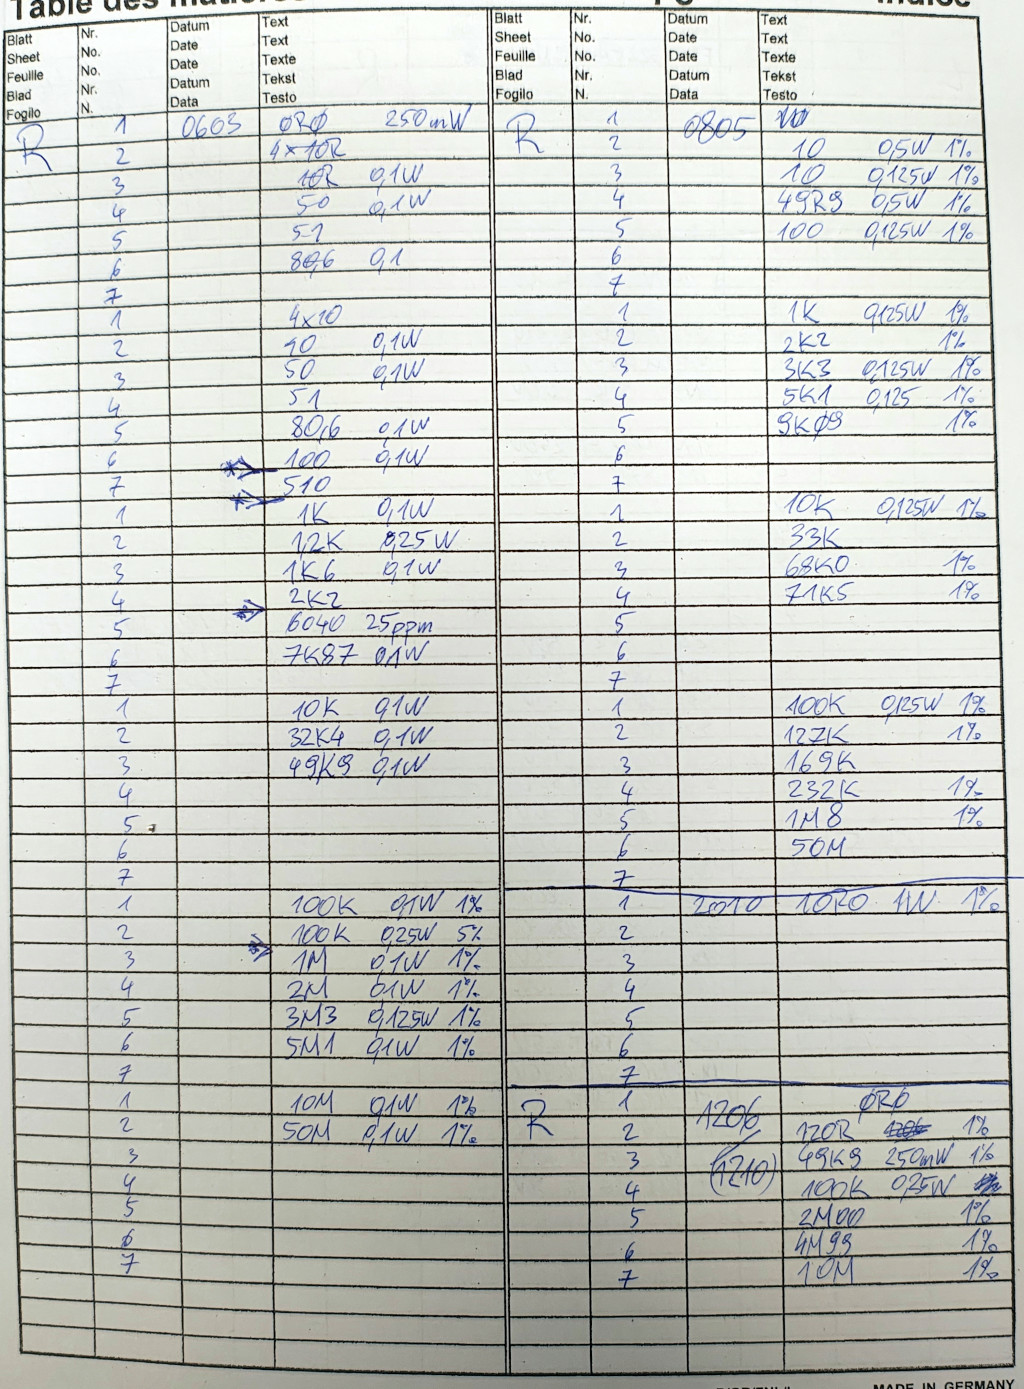 Blatt Nr. Datum Text
Sheet No. Date Text
Feuille No. Date Texte
Blad Nr. Datum Tekst
Foglio N. Data Testo
R 1 0603 ØRØ 250mW
2 4x10R
3 10R 0,1W
4 50 0,1W
5 51
6 80,6 0,1
7
1 4x10
2 0,1W
3 50 0,1W
4 51
5 80,6 0,1W
6 100 0,1W
7 510
1 1K 0,1W
2 1,2K 0,25W
3 1K6 0,1W
4 2K2
5 6040 25ppm
6 7K87 0,1W
7
1 10K 0,1W
2 32K4 0,1W
3 49K9 0,1W
4
5
6
7
1 100K 0,1W 1%
2 100K 0,25W 5%
3 1M 0,1W 1%
4 2M 0,1W 1%
5 3M3 0,125W 1%
6 5M1 0,1W 1%
7
1 10M 0,1W 1%
2 50M 0,1W 1%
3
4
5
6
7
Blatt Nr. Datum Text
Sheet No. Date Text
Feuille No. Date Texte
Blad Nr. Datum Tekst
Foglio N. Data Testo
R 1 0805
2 10 0,5W 1%
3 10 0,125W 1%
4 49R9 0,5W 1%
5 100 0,125W 1%
6
7
1 1K 0,125W 1%
2 2K2 1%
3 3K3 0,125W 1%
4 5K1 0,125 1%
5 9KØ9 1%
6
7
1 10K 0,125W 1%
2 33K
3 68K0 1%
4 71K5 1%
5
6
7
1 100K 0,125W 1%
2 127K 1%
3 169K
4 232K 1%
5 1M8 1%
6 50M
7
1 2010 10R0 1W 1%
2
3
4
5
6
7
R 1 1206 ØRØ
2 120R 1%
3 (1210) 49K9 250mW 1%
4 100K 0,25W
5 2M00 1%
6 4M99 1%
7 10M 1%
MADE IN GERMANY